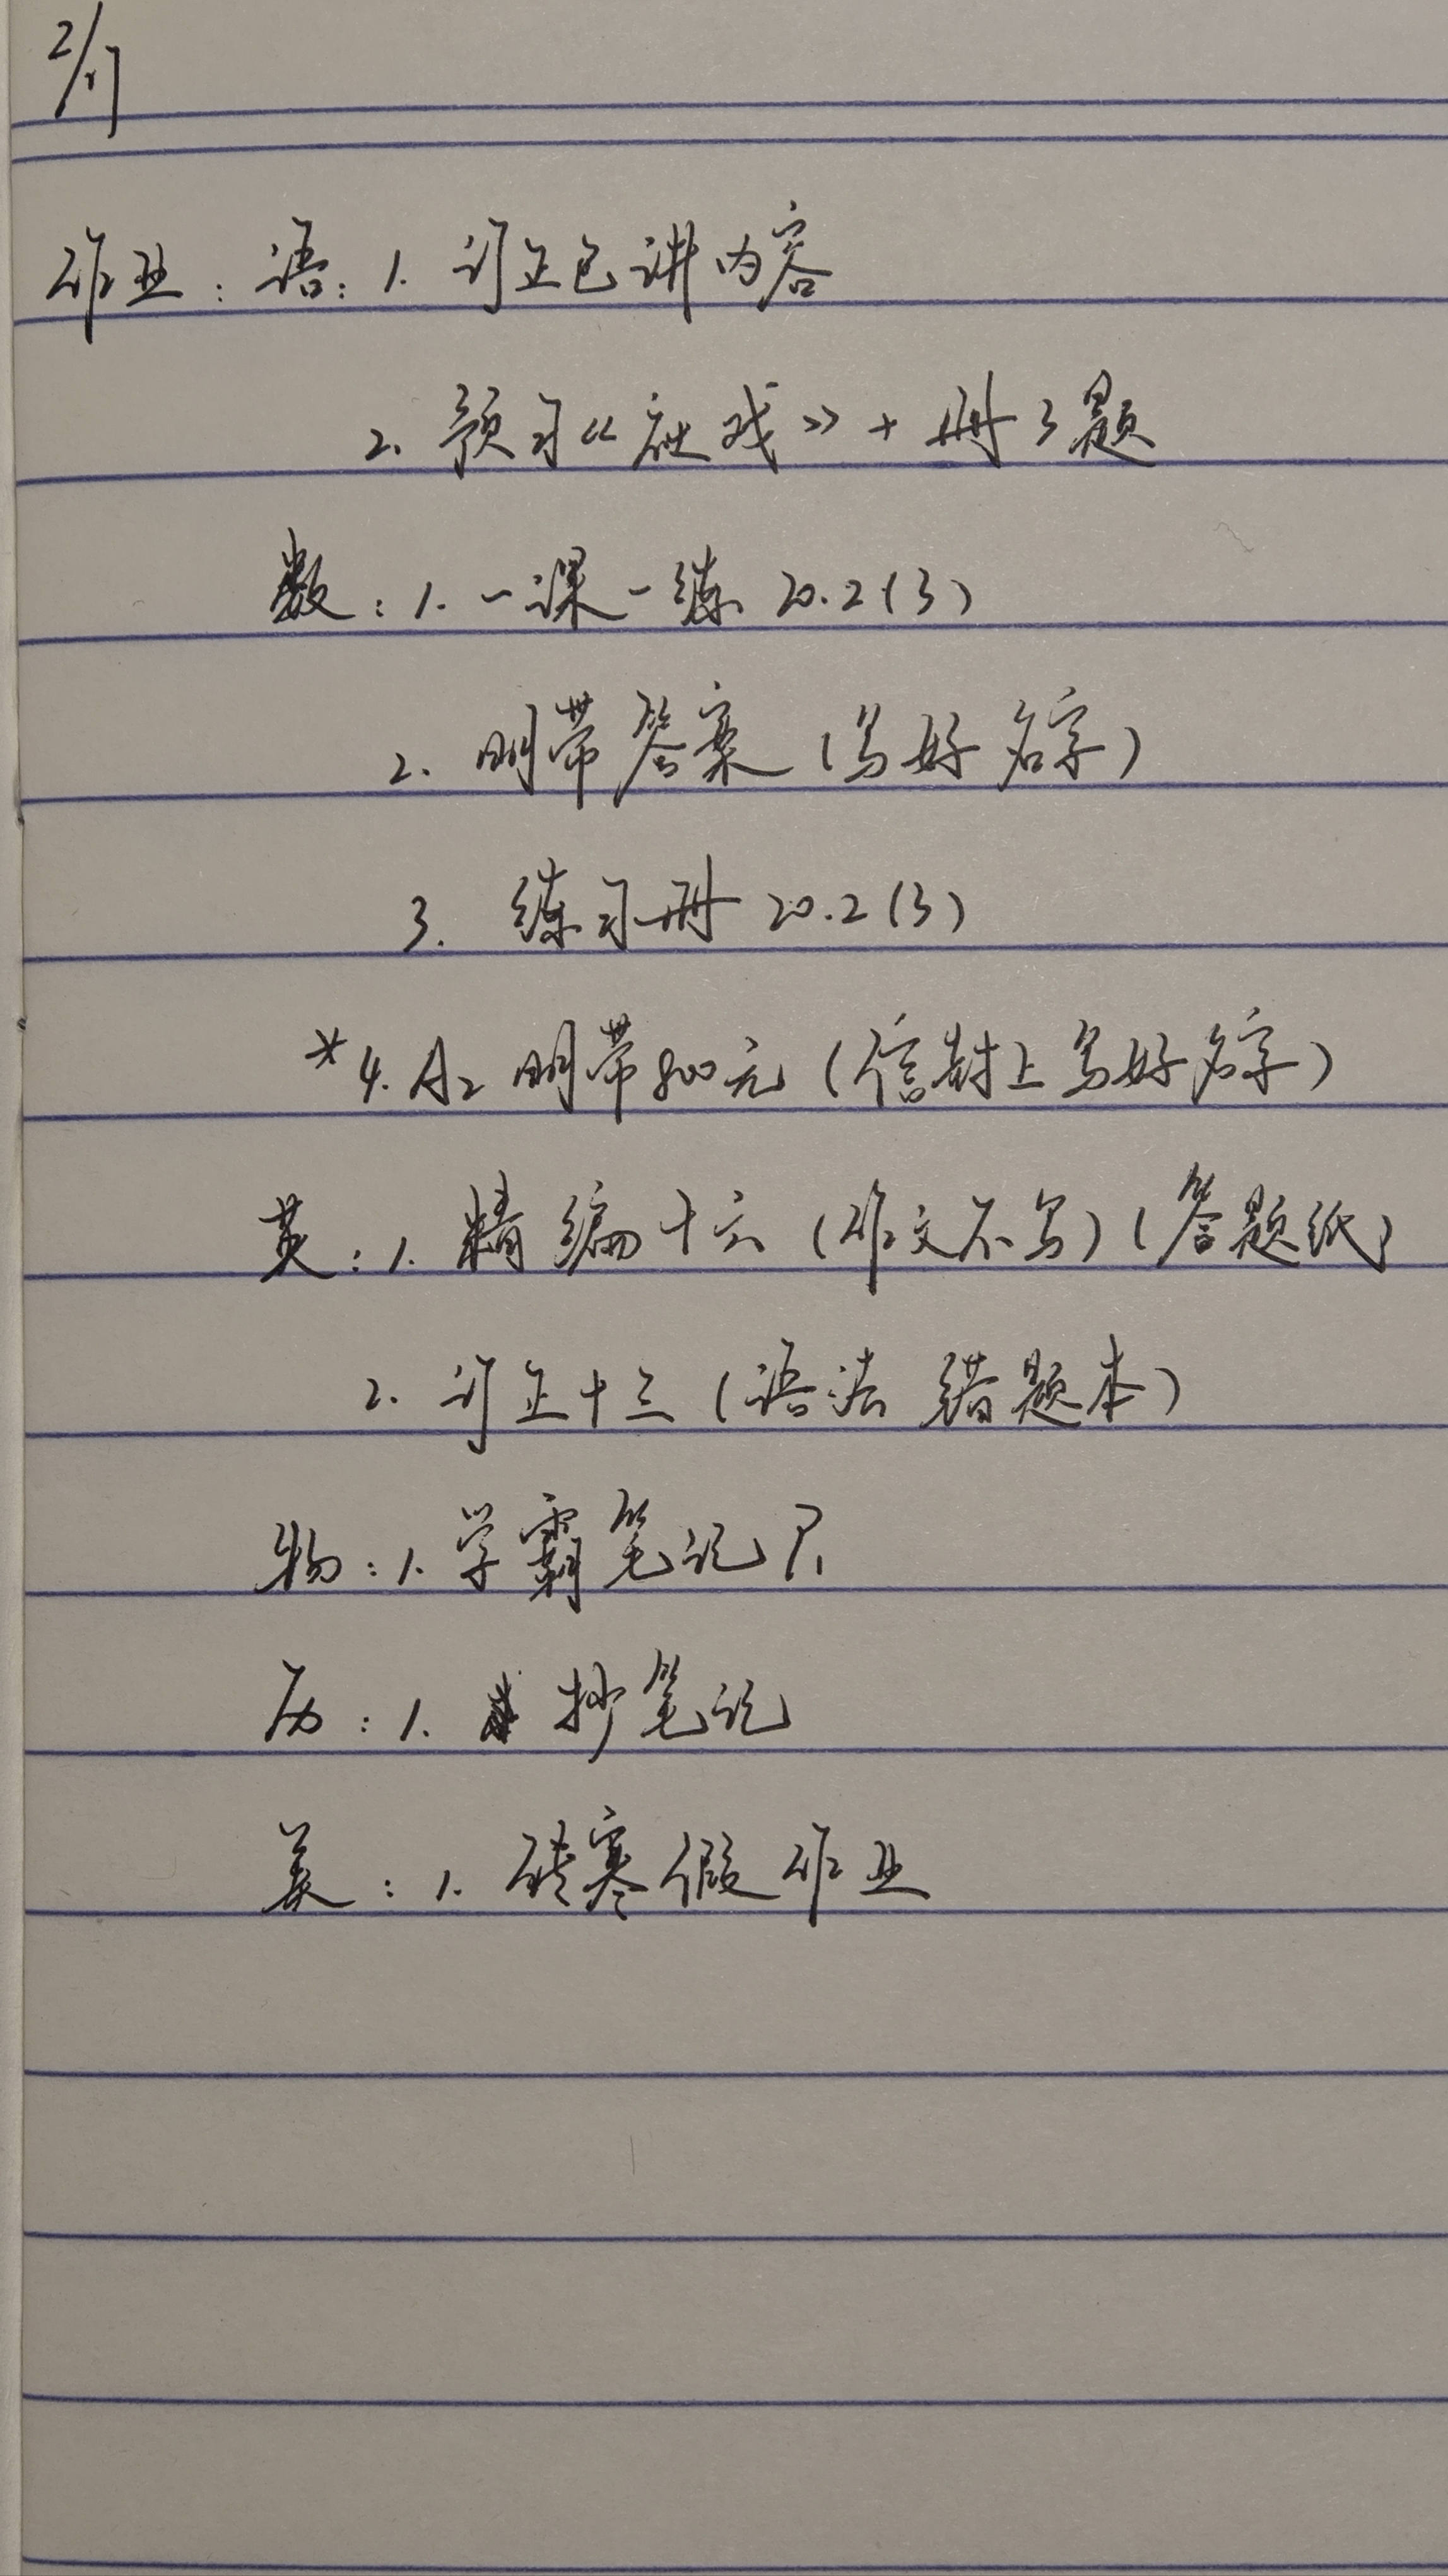 作业：语：1. 订正已讲内容
2. 预习《社戏》+ 册3题
数：1. 一课一练 20.2(3)
2. 明带答案（写好名字）
3. 练习册 20.2(3)
*4. A2 明带800元（信封上写好名字）
英：1. 精编十六（作文不写）（答题纸）
2. 订正十三（语法 错题本）
物：1. 学霸笔记 P1
历：1. 抄笔记
美：1. 寒假作业